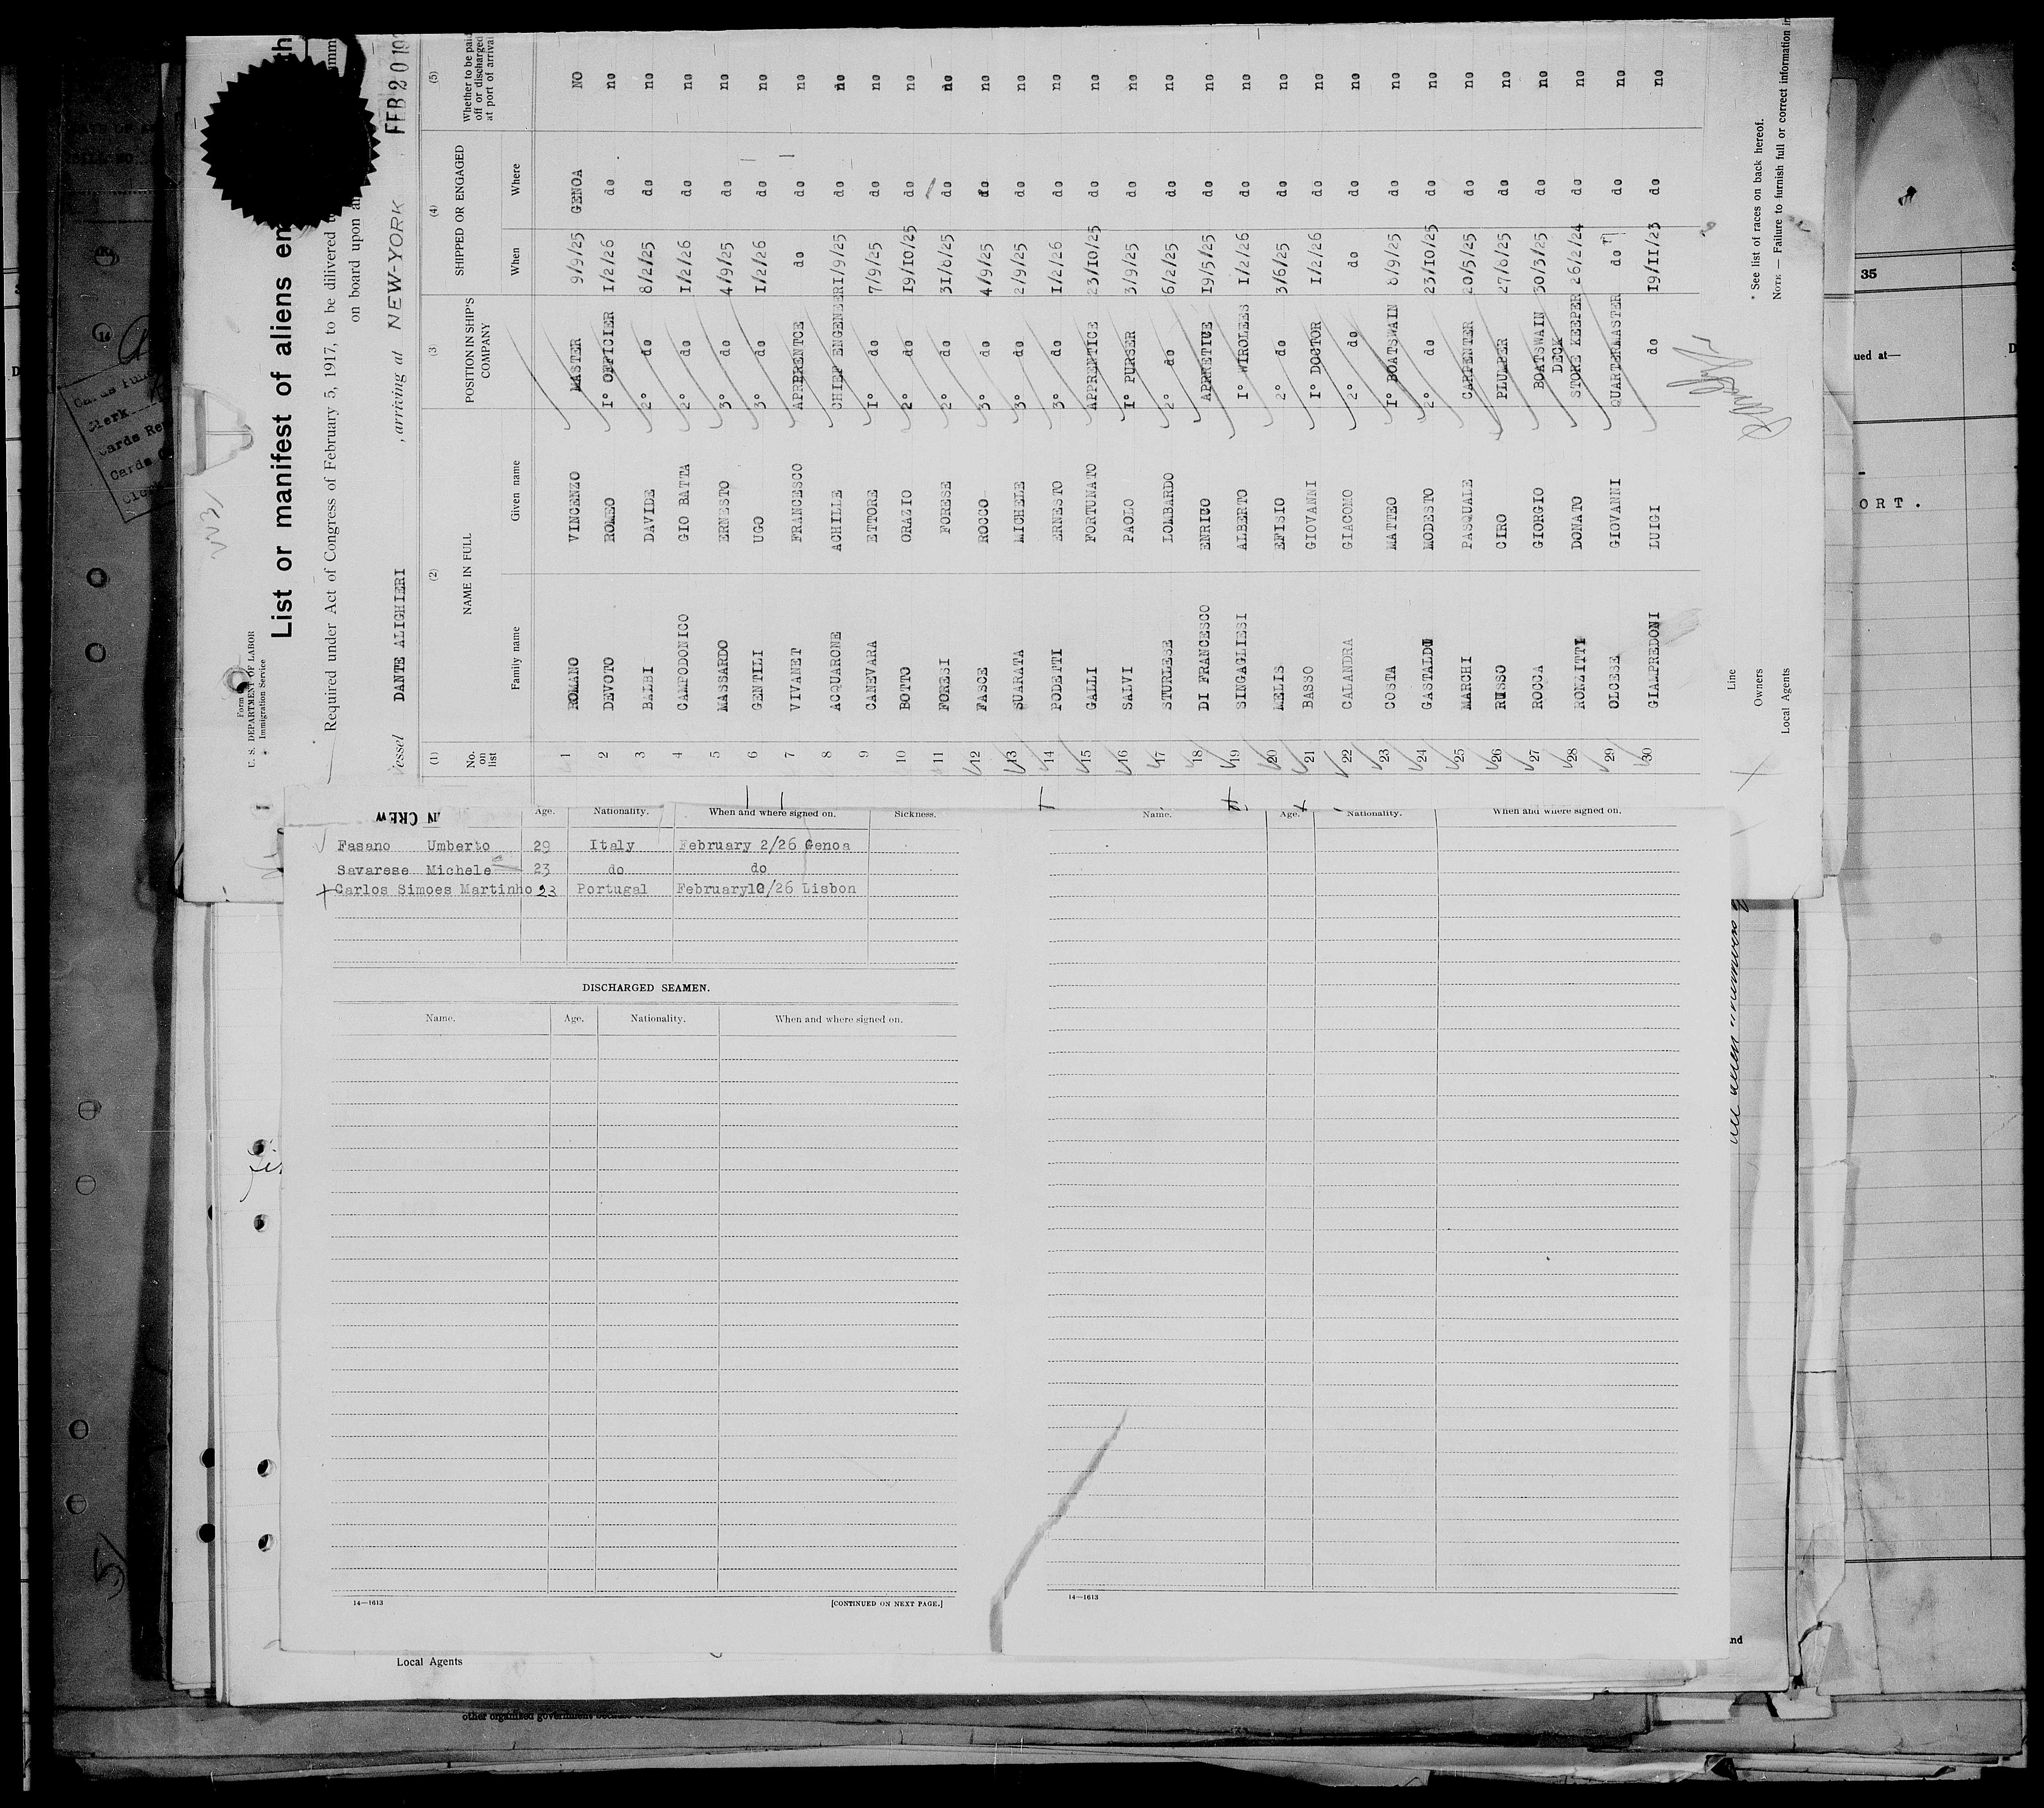 Form
U. S. DEPARTMENT OF LABOR
Immigration Service
List or manifest of aliens em
Required under Act of Congress of February 5, 1917, to be dilivered
on board upon
Vessel DANTE ALIGHIERI , arriving at NEW-YORK FEB 20 19
(1) (2) (3 (4) (5)
No. on list NAME IN FULL POSITION IN SHIP'S COMPANY SHIPPED OR ENGAGED Whether to be paid off or discharged at port of arrival
Family name Given name When Where
1 ROMANO VINCENZO MASTER 9/9/25 GENOA NO
2 DEVOTO ROMEO I° OFFICIER 1/2/26 do no
3 BALBI DAVIDE 2° do 8/2/25 do no
4 CAMPODONICO GIO BATTA 2° do 1/2/26 do no
5 MASSARDO ERNESTO 3° do 4/9/25 do no
6 GENTILI UGO 3° do 1/2/26 do no
7 VIVANET FRANCESCO APPRENTCE do do no
8 ACQUARONE ACHILLE CHIEF ENGENEER 1/9/25 do no
9 CANEVARA ETTORE I° do 7/9/25 do no
10 BOTTO ORAZIO 2° do 19/10/25 do no
11 FORESI FORESE 2° do 31/8/25 do no
12 FASCE ROCCO 3° do 4/9/25 do no
13 SUARATA MICHELE 3° do 2/9/25 do no
14 PODETTI ERNESTO 3° do 1/2/26 do no
15 GALLI FORTUNATO APPRENTICE 23/10/25 do no
16 SALVI PAOLO I° PURSER 3/9/25 do no
17 STURLESE LOMBARDO 2° do 6/2/25 do no
18 DI FRANCESCO ENRICO 19/5/25 do no
19 SINGAGLIESI ALBERTO I° WIROLEES 1/2/26 do no
20 MELIS EFISIO 2° do 3/6/25 do no
21 BASSO GIOVANNI I° DOCTOR 1/2/26 do no
22 CALANDRA GIACOMO 2° do do do no
23 COSTA MATTEO I° BOATSWAIN 8/9/25 do no
24 GASTALDI MODESTO 2° do 23/10/25 do no
25 MARCHI PASQUALE CARPENTER 20/5/25 do no
26 RUSSO CIRO PLUMPER 27/8/25 do no
27 ROCCA GIORGIO BOATSWAIN 30/3/25 do no
28 RONZITTI DONATO DECK STORE KEEPER 26/2/24 do no
29 OLCESE GIOVANNI QUARTERMASTER do do no
30 GIAMPREDONI LUIGI do 19/11/23 do no
Line
Owners
Local Agents
* See list of races on back hereof.
NOTE — Failure to furnish full or correct information in
N CREW
Age. Nationality. When and where signed on. Sickness.
Fasano Umberto 29 Italy February 2/26 Genoa
Savarese Michele 23 do do
Carlos Simoes Martinho 23 Portugal February10/26 Lisbon
DISCHARGED SEAMEN.
Name. Age. Nationality. When and where signed on.
14—1613 [CONTINUED ON NEXT PAGE.]
Name. Age. Nationality. When and where signed on.
14—1613
Local Agents
other organised government
35
ued at—
ORT.
nd
Clerk
Cards
Cards